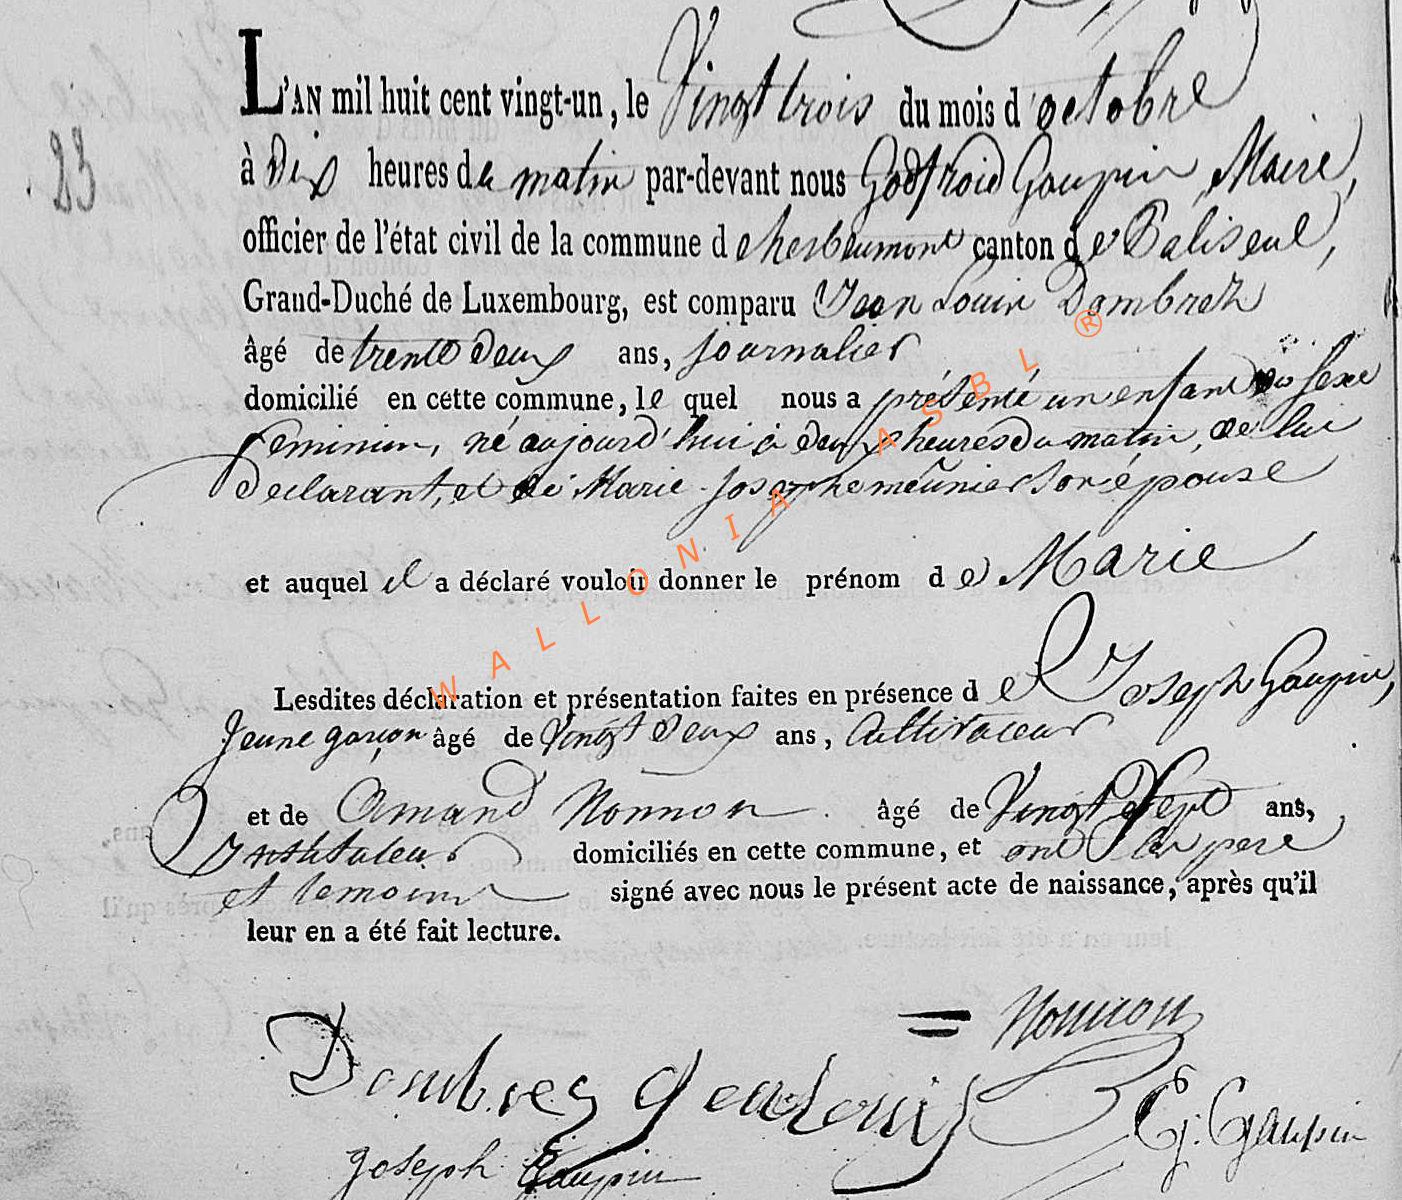 23
L'AN mil huit cent vingt-un, le Vingt trois du mois d'octobre
à Dix heures du matin par-devant nous Godfroid Goupin, Maire,
officier de l'état civil de la commune d'herbeumont canton de Paliseul,
Grand-Duché de Luxembourg, est comparu Jean Louis Dombrez
âgé de trente deux ans, journalier
domicilié en cette commune, lequel nous a présenté un enfant du sexe
feminin, né aujourd'hui à deux heures du matin, de lui
declarant, et de Marie Josephe meûnier son épouse
et auquel il a déclaré vouloir donner le prénom de Marie
Lesdites déclaration et présentation faites en présence de Joseph Goupin,
Jeune garçon âgé de Vingt deux ans, Cultivateur
et de Amand Nonnon âgé de Vingt et Sept ans,
Instituteur domiciliés en cette commune, et ont les pere
et temoins signé avec nous le présent acte de naissance, après qu'il
leur en a été fait lecture.
Nonnon
Dombrez Jean Louis
G. Goupin
Joseph Goupin
WALLONIA ASBL ®